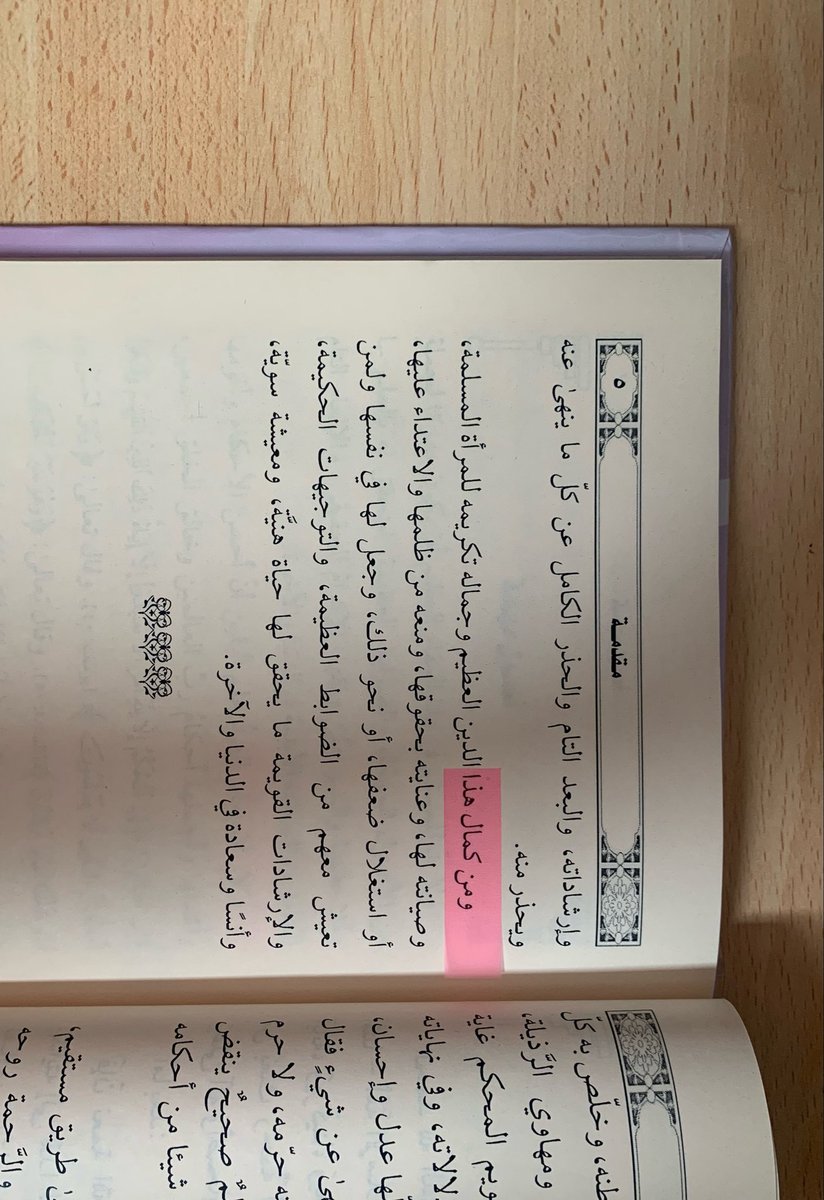 ٥
مقدمة
وإرشاداته، والبعد التام والحذر الكامل عن كلّ ما ينهىٰ عنه
ويحذر منه.
ومن كمال هذا الدين العظيم وجماله تكريمه للمرأة المسلمة،
وصيانته لها، وعنايته بحقوقها، ومنعه من ظلمها والاعتداء عليها،
أو استغلال ضعفها، أو نحو ذلك، وجعل لها في نفسها ولمن
تعيش معهم من الضوابط العظيمة، والتوجيهات الحكيمة،
والإرشادات القويمة ما يحقق لها حياة هنيَّة، ومعيشة سويّة،
وأنسًا وسعادة في الدنيا والآخرة.
وخلّص به كلّ
ومهاوي الرَّذيلة،
المحكم غاية
وفي نهاياته
عدل وإحسان،
عن شيءٍ فقال
حرّمه، ولا حرم
صحيحٌ ينقض
شيئا من أحكامه
طريق مستقيم،
والرَّحمة روحه